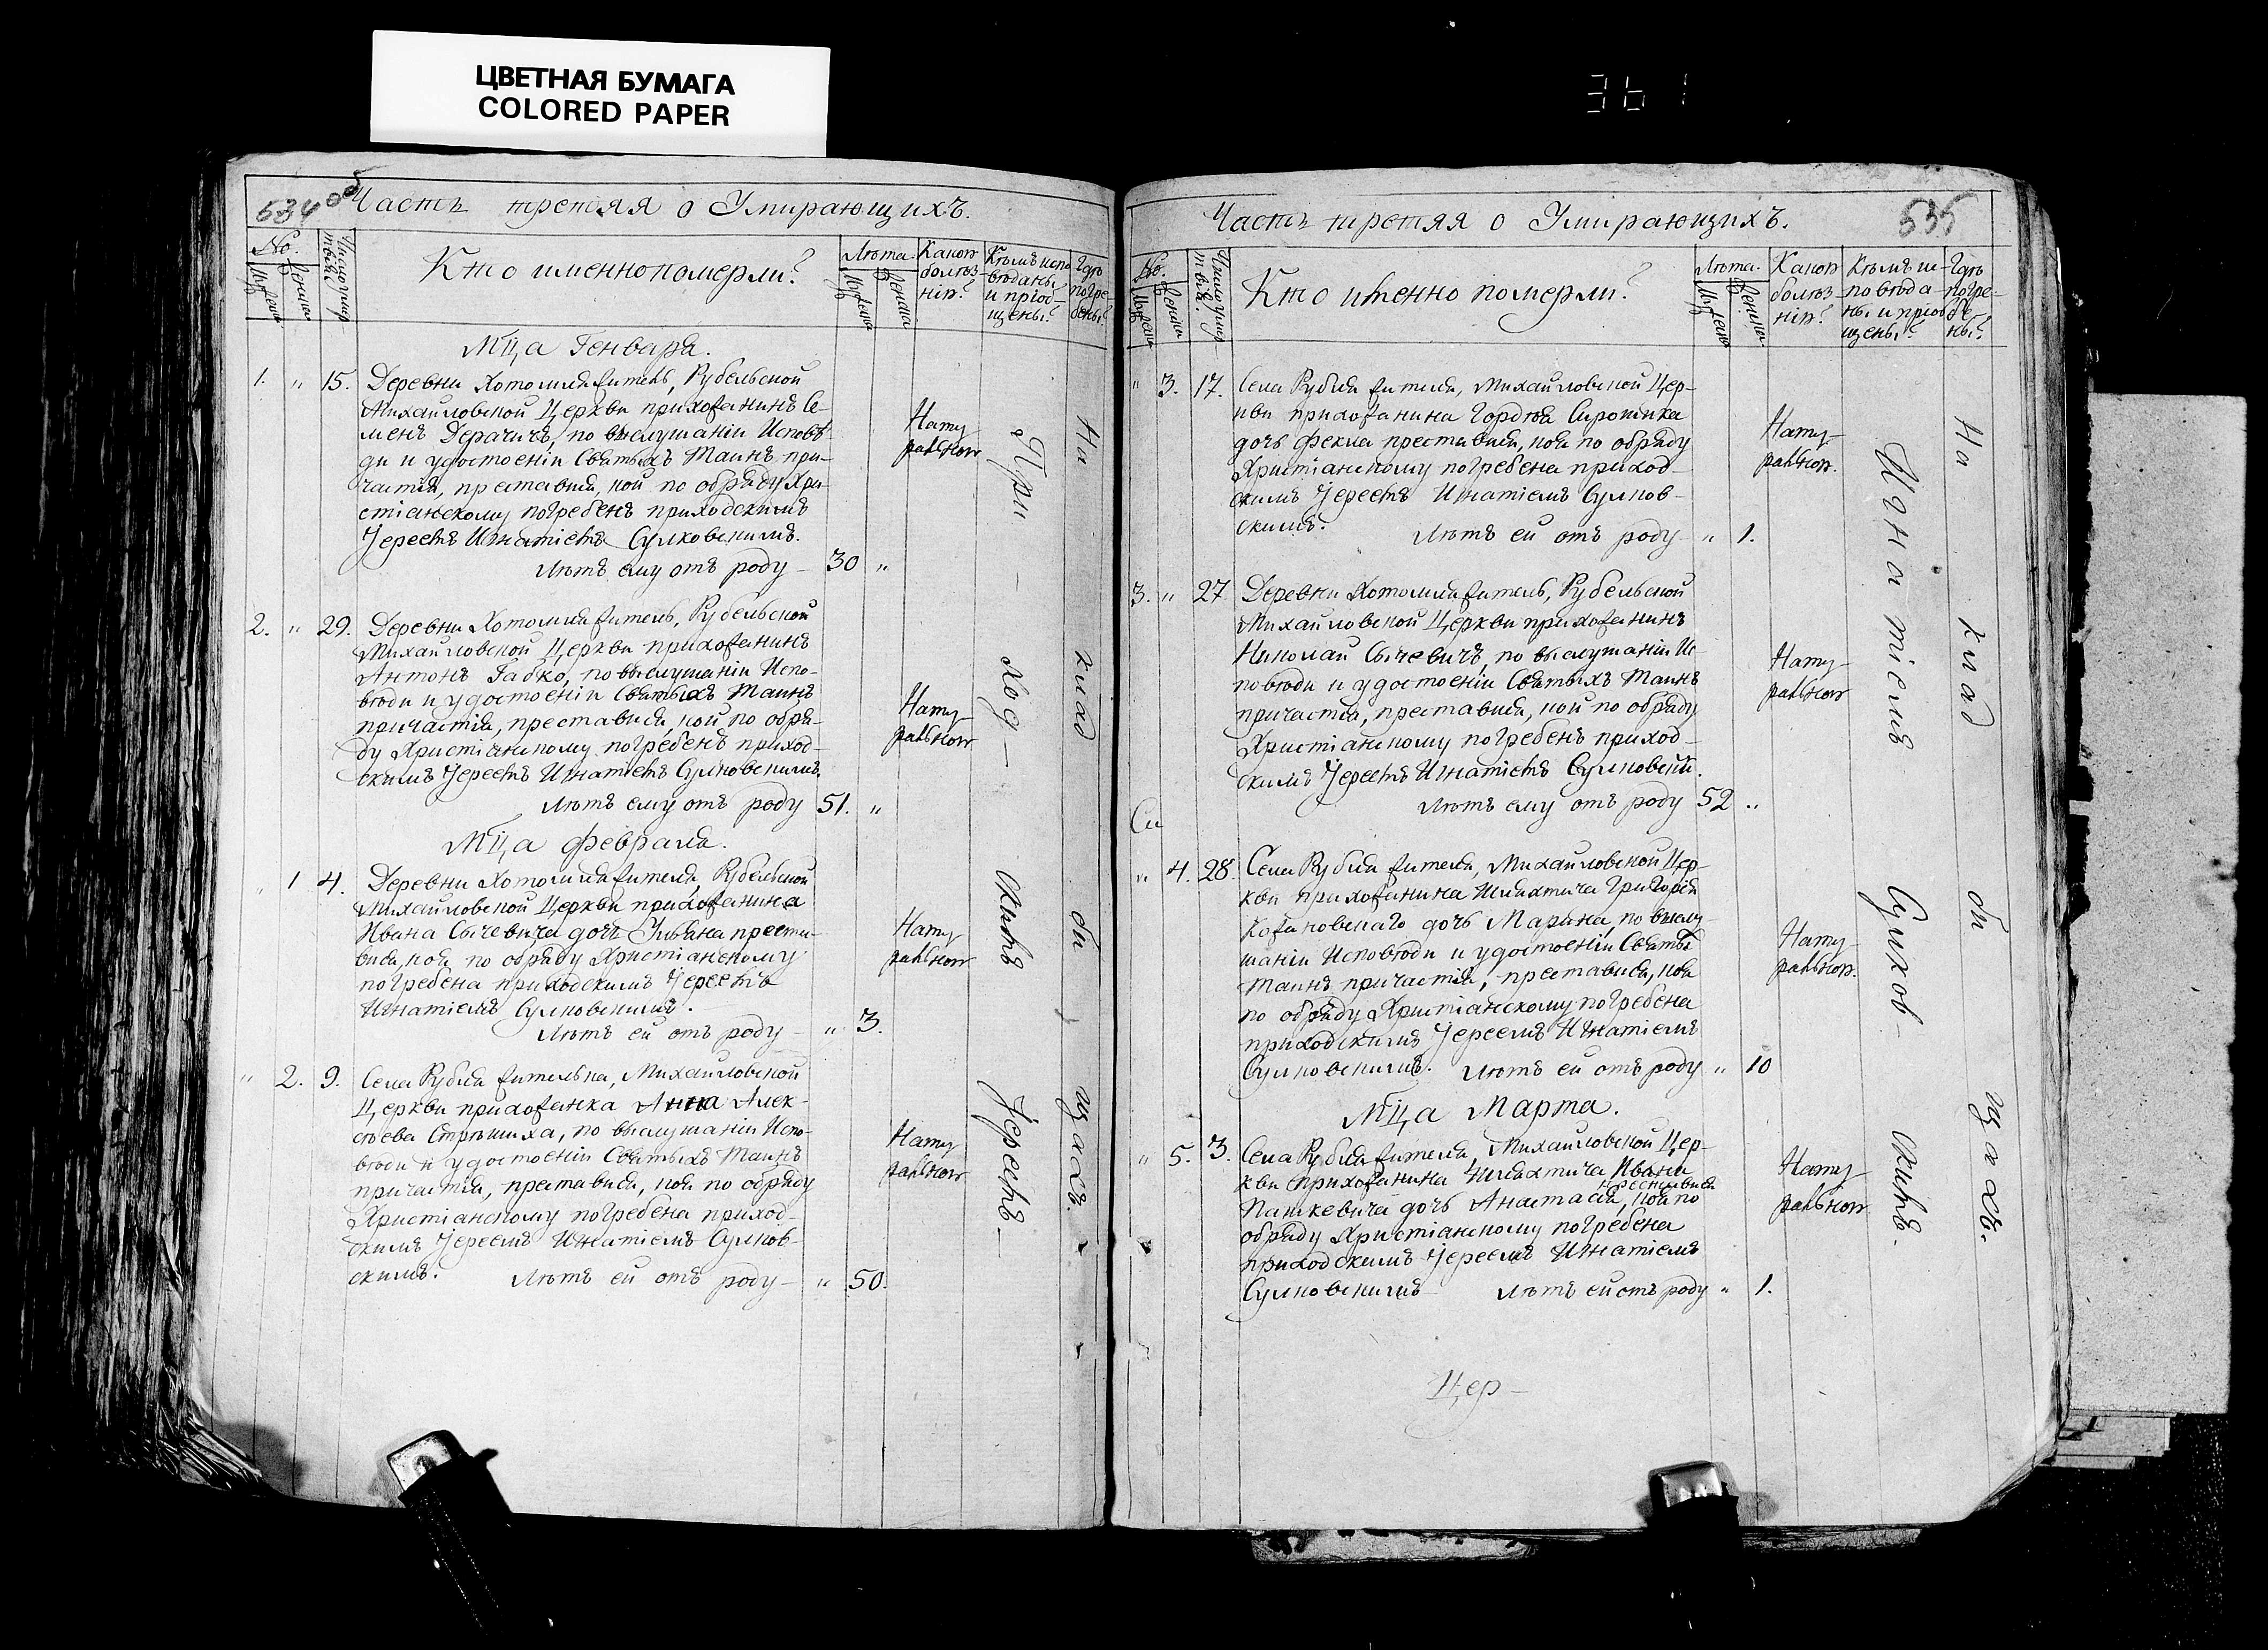 ЦВЕТНАЯ БУМАГА
COLORED PAPER
361
534 об
Часть третяя о Умирающихъ.
№.
Мужеска
Женска
Число умертвій
Кто именно померли?
Лѣта.
Мужеска
Женска
Какою болѣзнію?
Кѣмъ исповѣданы и пріобщены?
Гдѣ погребены?
Мца Генваря.
1. „ 15. Деревни Хотомля житель, Рубельской
Михайловской Церкви прихожанинъ Се-
менъ Дерачичъ, по выслушаніи Исповѣ-
ди и удостоеніи Святыхъ Таинъ при-
частія, преставися, кой по обряду Хри-
стіанскому погребенъ приходскимъ
Іереемъ Игнатіемъ Сулковскимъ.
Лѣтъ ему отъ роду – 30 „
Нату-
ральною
2. „ 29. Деревни Хотомля житель, Рубельской
Михайловской Церкви прихожанинъ
Антонъ Габко, по выслушаніи Испо-
вѣди и удостоеніи Святыхъ Таинъ
причастія, преставися, кой по обря-
ду Христіанскому погребенъ приход-
скимъ Іереемъ Игнатіемъ Сулковскимъ.
Лѣтъ ему отъ роду 51. „
Нату-
ральною
Мца Февраля.
„ 1 4. Деревни Хотомля жителя, Рубельской
Михайловской Церкви прихожанина
Ивана Сычевича дочь Ульяна преста-
вися, коя по обряду Христіанскому
погребена приходскимъ Іереемъ
Игнатіемъ Сулковскимъ.
Лѣтъ ей отъ роду – „ 3.
Нату-
ральною
„ 2. 9. Села Рубля жителька, Михайловской
Церкви прихожанка Анна Алек-
сѣева Стрѣшиха, по выслушаніи Испо-
вѣди и удостоеніи Святыхъ Таинъ
причастія, преставися, коя по обряду
Христіанскому погребена приход-
скимъ Іереемъ Игнатіемъ Сулков-
скимъ. Лѣтъ ей отъ роду – „ 50.
Нату-
ральною
При – ход – скимъ Іереемъ –
На клад би щахъ.
535
Часть третяя о Умирающихъ.
№.
Мужеска
Женска
Число умертвій.
Кто именно померли?
Лѣта.
Мужеска
Женска.
Какою болѣзнію?
Кѣмъ исповѣданы и пріобщены?
Гдѣ погребены?
„ 3. 17. Села Рубля жителя, Михайловской Цер-
кви прихожанина Гордѣя Сиротика
дочь Фекла преставися, коя по обряду
Христіанскому погребена приход-
скимъ Іереемъ Игнатіемъ Сулков-
скимъ. Лѣтъ ей отъ роду – „ 1.
Нату-
ральною.
3. „ 27 Деревни Хотомля житель, Рубельской
Михайловской Церкви прихожанинъ
Николай Сычевичъ, по выслушаніи Ис
повѣди и удостоеніи Святыхъ Таинъ
причастія, преставися, кой по обряду
Христіанскому погребенъ приход-
скимъ Іереемъ Игнатіемъ Сулковский.
Лѣтъ ему отъ роду 52 „
Нату-
ральною
Си
„ 4. 28. Села Рубля жителя, Михайловской Цер-
кви прихожанина Шляхтича Григорія
Кожановскаго дочь Марина, по выслу-
шаніи Исповѣди и удостоеніи Святы
Таинъ причастія, преставися, коя
по обряду Христіанскому погребена
приходскимъ Іереемъ Игнатіемъ
Сулковскимъ. Лѣтъ ей отъ роду „ 10
Нату-
ральною.
Мца Марта.
„ 5. 3. Села Рубля жителя, Михайловской Цер-
кви прихожанина Шляхтича Ивана
преставися
Пашкевича дочь Анастасія, коя по
обряду Христіанскому погребена
приходскимъ Іереемъ Игнатіемъ
Сулковскимъ Лѣтъ ей отъ роду „ 1.
Нату-
ральною
Игнатіемъ Сулков – скимъ.
На клад би щахъ.
Цер-